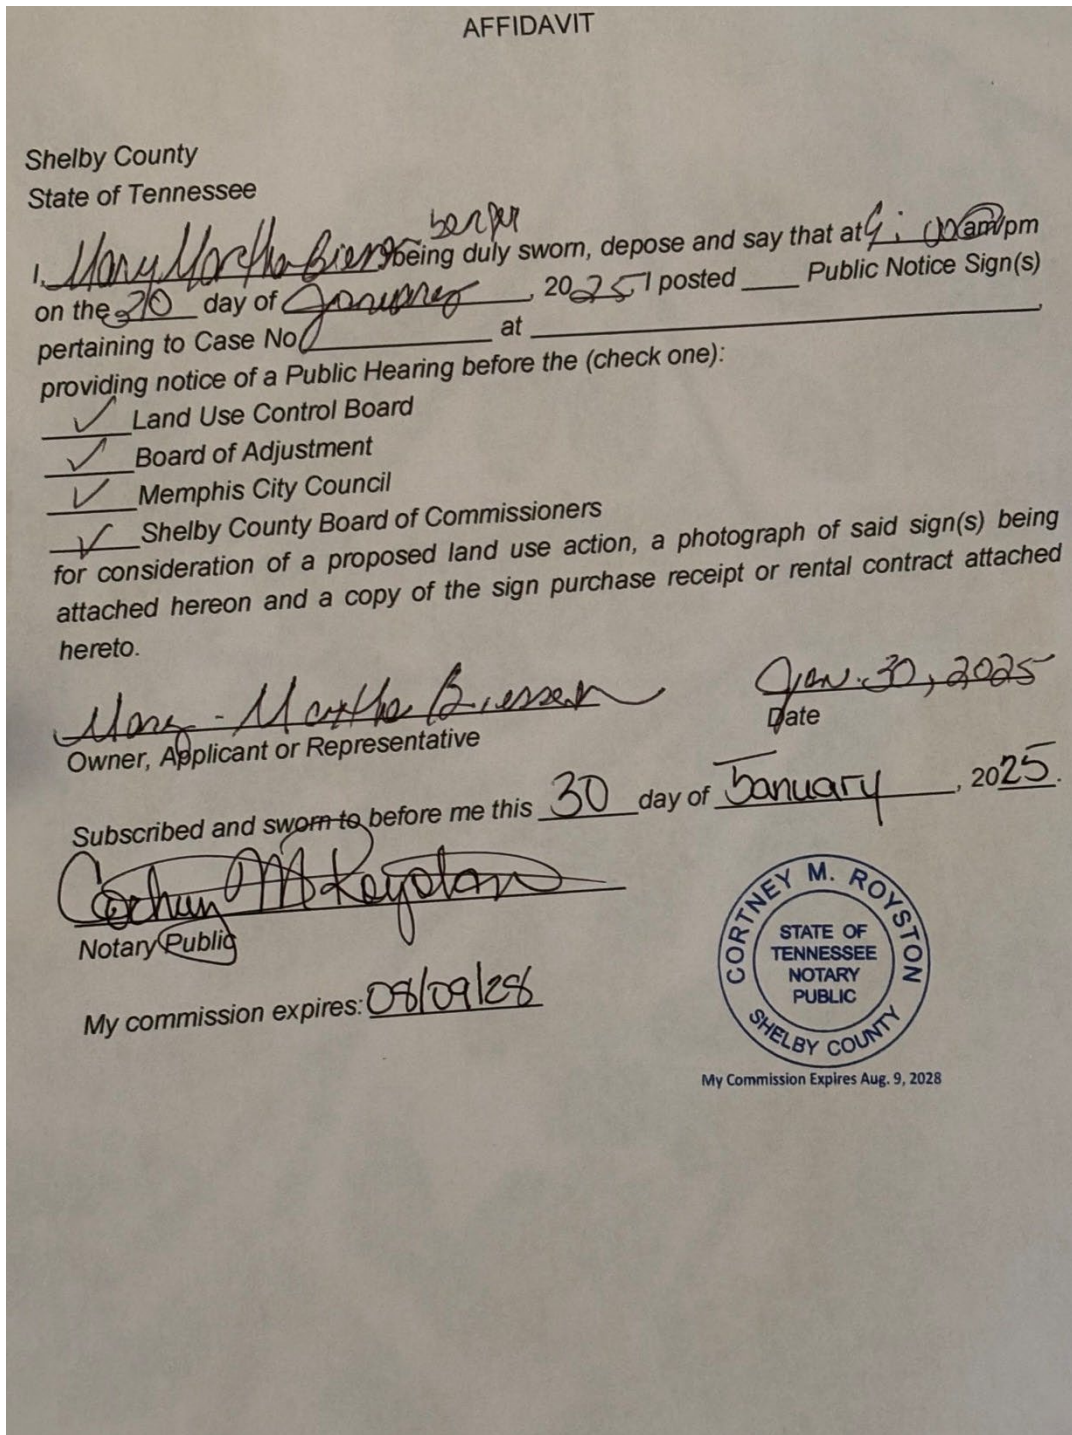 AFFIDAVIT
Shelby County
State of Tennessee
I, Mary Martha being duly sworn, depose and say that at : 00 am/pm
on the day of January, 2025 I posted ____ Public Notice Sign(s)
pertaining to Case No. ____ at ____,
providing notice of a Public Hearing before the (check one):
✓ Land Use Control Board
✓ Board of Adjustment
✓ Memphis City Council
✓ Shelby County Board of Commissioners
for consideration of a proposed land use action, a photograph of said sign(s) being
attached hereon and a copy of the sign purchase receipt or rental contract attached
hereto.
Mary-Martha
Jan. 30, 2025
Owner, Applicant or Representative
Date
Subscribed and sworn to before me this 30 day of January, 2025.
Notary Public
My commission expires: 08/09/28
CORTNEY M. ROYSTON
STATE OF
TENNESSEE
NOTARY
PUBLIC
SHELBY COUNTY
My Commission Expires Aug. 9, 2028